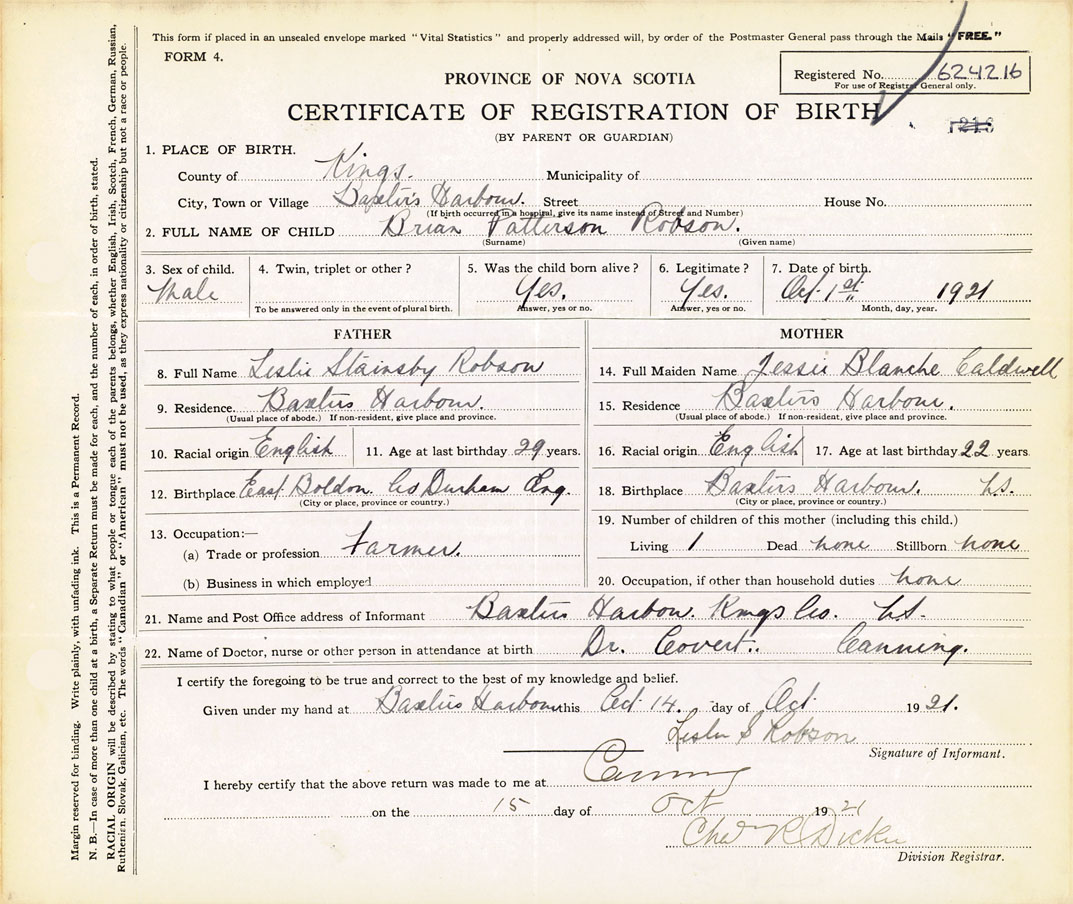 This form if placed in an unsealed envelope marked "Vital Statistics" and properly addressed will, by order of the Postmaster General pass through the Mails "FREE."
FORM 4.
Registered No. 624216
For use of Registrar General only.
PROVINCE OF NOVA SCOTIA
CERTIFICATE OF REGISTRATION OF BIRTH
(BY PARENT OR GUARDIAN)
1. PLACE OF BIRTH.
County of Kings. Municipality of
City, Town or Village Baxters Harbour. Street House No.
(If birth occurred in a hospital, give its name instead of Street and Number)
2. FULL NAME OF CHILD Brian Patterson Robson.
(Surname) (Given name)
3. Sex of child. 4. Twin, triplet or other? 5. Was the child born alive? 6. Legitimate? 7. Date of birth.
Male Yes. Yes. Oct. 1st 1921
To be answered only in the event of plural birth. Answer, yes or no. Answer, yes or no. Month, day, year.
FATHER
8. Full Name Leslie Stainsby Robson
9. Residence. Baxters Harbour.
(Usual place of abode.) If non-resident, give place and province.
10. Racial origin English 11. Age at last birthday 29 years.
12. Birthplace East Boldon. Co Durham Eng.
(City or place, province or country.)
13. Occupation:—
(a) Trade or profession Farmer.
(b) Business in which employed
MOTHER
14. Full Maiden Name Jessie Blanche Caldwell
15. Residence Baxters Harbour.
(Usual place of abode.) If non-resident, give place and province.
16. Racial origin English 17. Age at last birthday 22 years
18. Birthplace Baxters Harbour. N.S.
(City or place, province or country.)
19. Number of children of this mother (including this child.)
Living 1 Dead none Stillborn none
20. Occupation, if other than household duties none
21. Name and Post Office address of Informant Baxters Harbor. Kings Co. N.S.
22. Name of Doctor, nurse or other person in attendance at birth Dr. Covert. Canning.
I certify the foregoing to be true and correct to the best of my knowledge and belief.
Given under my hand at Baxters Harbour this Oct 14. day of Oct 1921.
Leslie S Robson
Signature of Informant.
I hereby certify that the above return was made to me at Canning
on the 15 day of Oct 1921
Chas R Dickie
Division Registrar.
Margin reserved for binding. Write plainly, with unfading ink. This is a Permanent Record.
N. B.—In case of more than one child at a birth, a Separate Return must be made for each, and the number of each, in order of birth, stated.
RACIAL ORIGIN will be described by stating to what people or tongue each of the parents belongs, whether English, Irish, Scotch, French, German, Russian,
Ruthenian, Slovak, Galician, etc. The words "Canadian" or "American" must not be used, as they express nationality or citizenship but not a race or people.